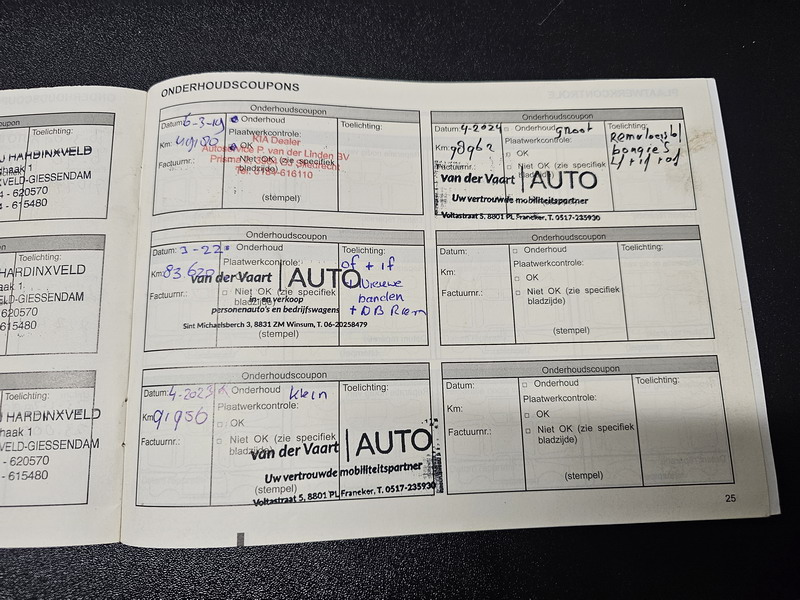 ONDERHOUDSCOUPONS
upon
Toelichting:
HARDINXVELD
haak 1
VELD-GIESSENDAM
- 620570
- 615480
HARDINXVELD
haak 1
ELD-GIESSENDAM
- 620570
615480
HARDINXVELD
haak 1
VELD-GIESSENDAM
- 620570
- 615480
Onderhoudscoupon
Datum: 6-3-19
Onderhoud
Toelichting:
Km:
Plaatwerkcontrole:
OK
Factuurnr.:
Niet OK (zie specifiek
bladzijde)
(stempel)
KIA Dealer
Autoservice P. van der Linden BV
Tel. 0184-616110
Onderhoudscoupon
Datum: 3-22
Onderhoud
Toelichting:
Km: 83620
Plaatwerkcontrole:
OK
Factuurnr.:
Niet OK (zie specifiek
bladzijde)
(stempel)
of + if
+ Nieuwe
banden
+ DB Riem
van der Vaart | AUTO
in- en verkoop
personenauto's en bedrijfswagens
Sint Michaelsberch 3, 8831 ZM Winsum, T. 06-20258479
Onderhoudscoupon
Datum: 4-2023
Onderhoud klein
Toelichting:
Km: 91956
Plaatwerkcontrole:
OK
Factuurnr.:
Niet OK (zie specifiek
bladzijde)
(stempel)
van der Vaart | AUTO
Uw vertrouwde mobiliteitspartner
Voltastraat 5, 8801 PL Franeker, T. 0517-235930
Onderhoudscoupon
Datum: 4-2024
Onderhoud groot
Toelichting:
Km: 98962
Plaatwerkcontrole:
OK
Factuurnr.:
Niet OK (zie specifiek
bladzijde)
Remvloeistof
bougies
van der Vaart | AUTO
Uw vertrouwde mobiliteitspartner
Voltastraat 5, 8801 PL Franeker, T. 0517-235930
Onderhoudscoupon
Datum:
Onderhoud
Toelichting:
Km:
Plaatwerkcontrole:
OK
Factuurnr.:
Niet OK (zie specifiek
bladzijde)
(stempel)
Onderhoudscoupon
Datum:
Onderhoud
Toelichting:
Km:
Plaatwerkcontrole:
OK
Factuurnr.:
Niet OK (zie specifiek
bladzijde)
(stempel)
25